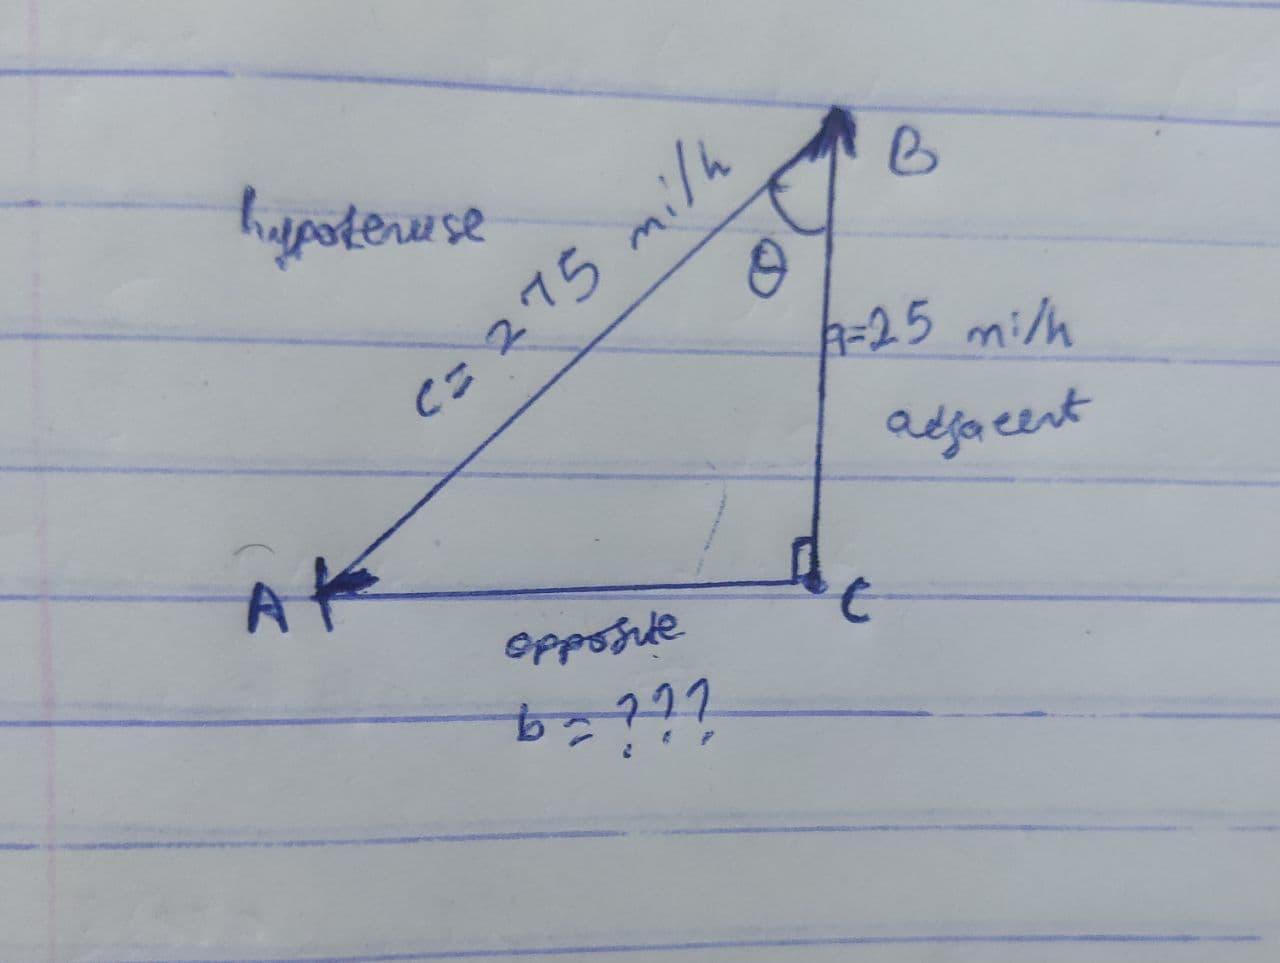 B
hypotenuse
c= 275 mi/h
θ
a=25 mi/h
adjacent
A
C
opposite
b=???